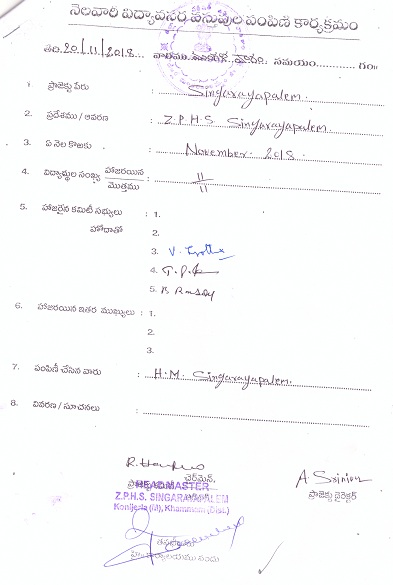 నెలవారి విద్యావసర వస్తువుల పంపిణి కార్యక్రమం
తేది.20/11/2018... వారము మంగళ వారం సమయం............గం॥
1. ప్రాజెక్టు పేరు : Singarayapalem
2. ప్రదేశము / ఆవరణ : Z.P.H.S Singarayapalem.
3. ఏ నెల కొఱకు : November. 2018.
4. విద్యార్థుల సంఖ్య హాజరయిన : 11
మొత్తము 11
5. హాజరైన కమిటీ సభ్యులు : 1.
హోదాతో 2.
3. V. Jyothi
4.
5. B Reddy
6. హాజరయిన ఇతర ముఖ్యులు : 1.
2.
3.
7. పంపిణీ చేసిన వారు : H.M. Singarayapalem.
8. వివరణ / సూచనలు :
చైర్మెన్,
HEADMASTER
Z.P.H.S. SINGARAYAPALEM
Konijerla (M), Khammam (Dist.)
A. Srinivas
ప్రాజెక్టు డైరెక్టర్